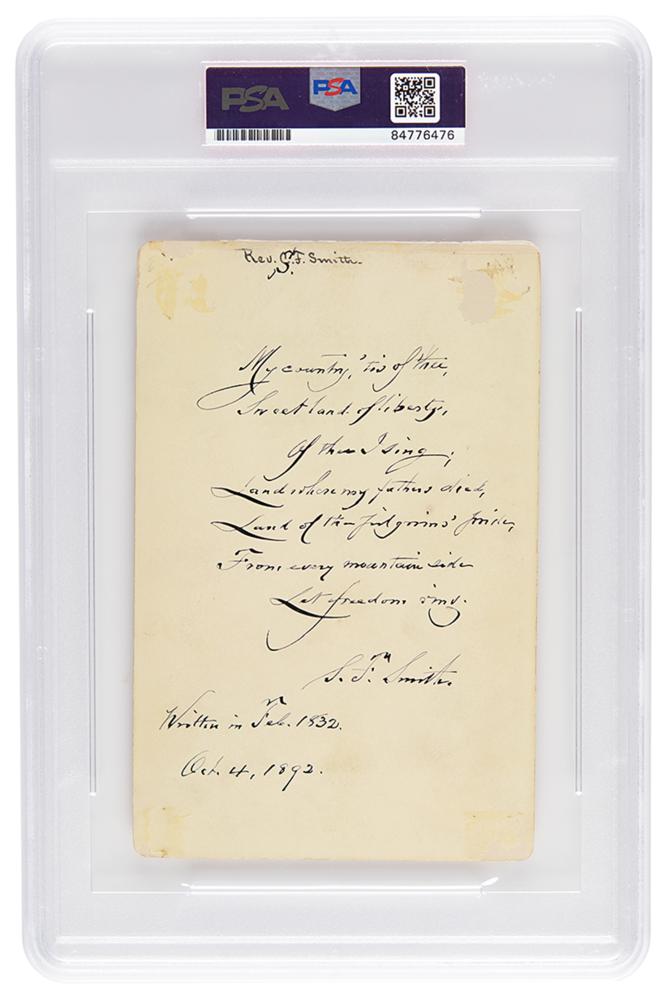 PSA
PSA
84776476
Rev. S. F. Smith.
My country, 'tis of thee,
Sweet land of liberty,
Of thee I sing;
Land where my fathers died,
Land of the pilgrims' pride,
From every mountain side
Let freedom ring.
S. F. Smith.
Written in Feb. 1832.
Oct. 4, 1892.